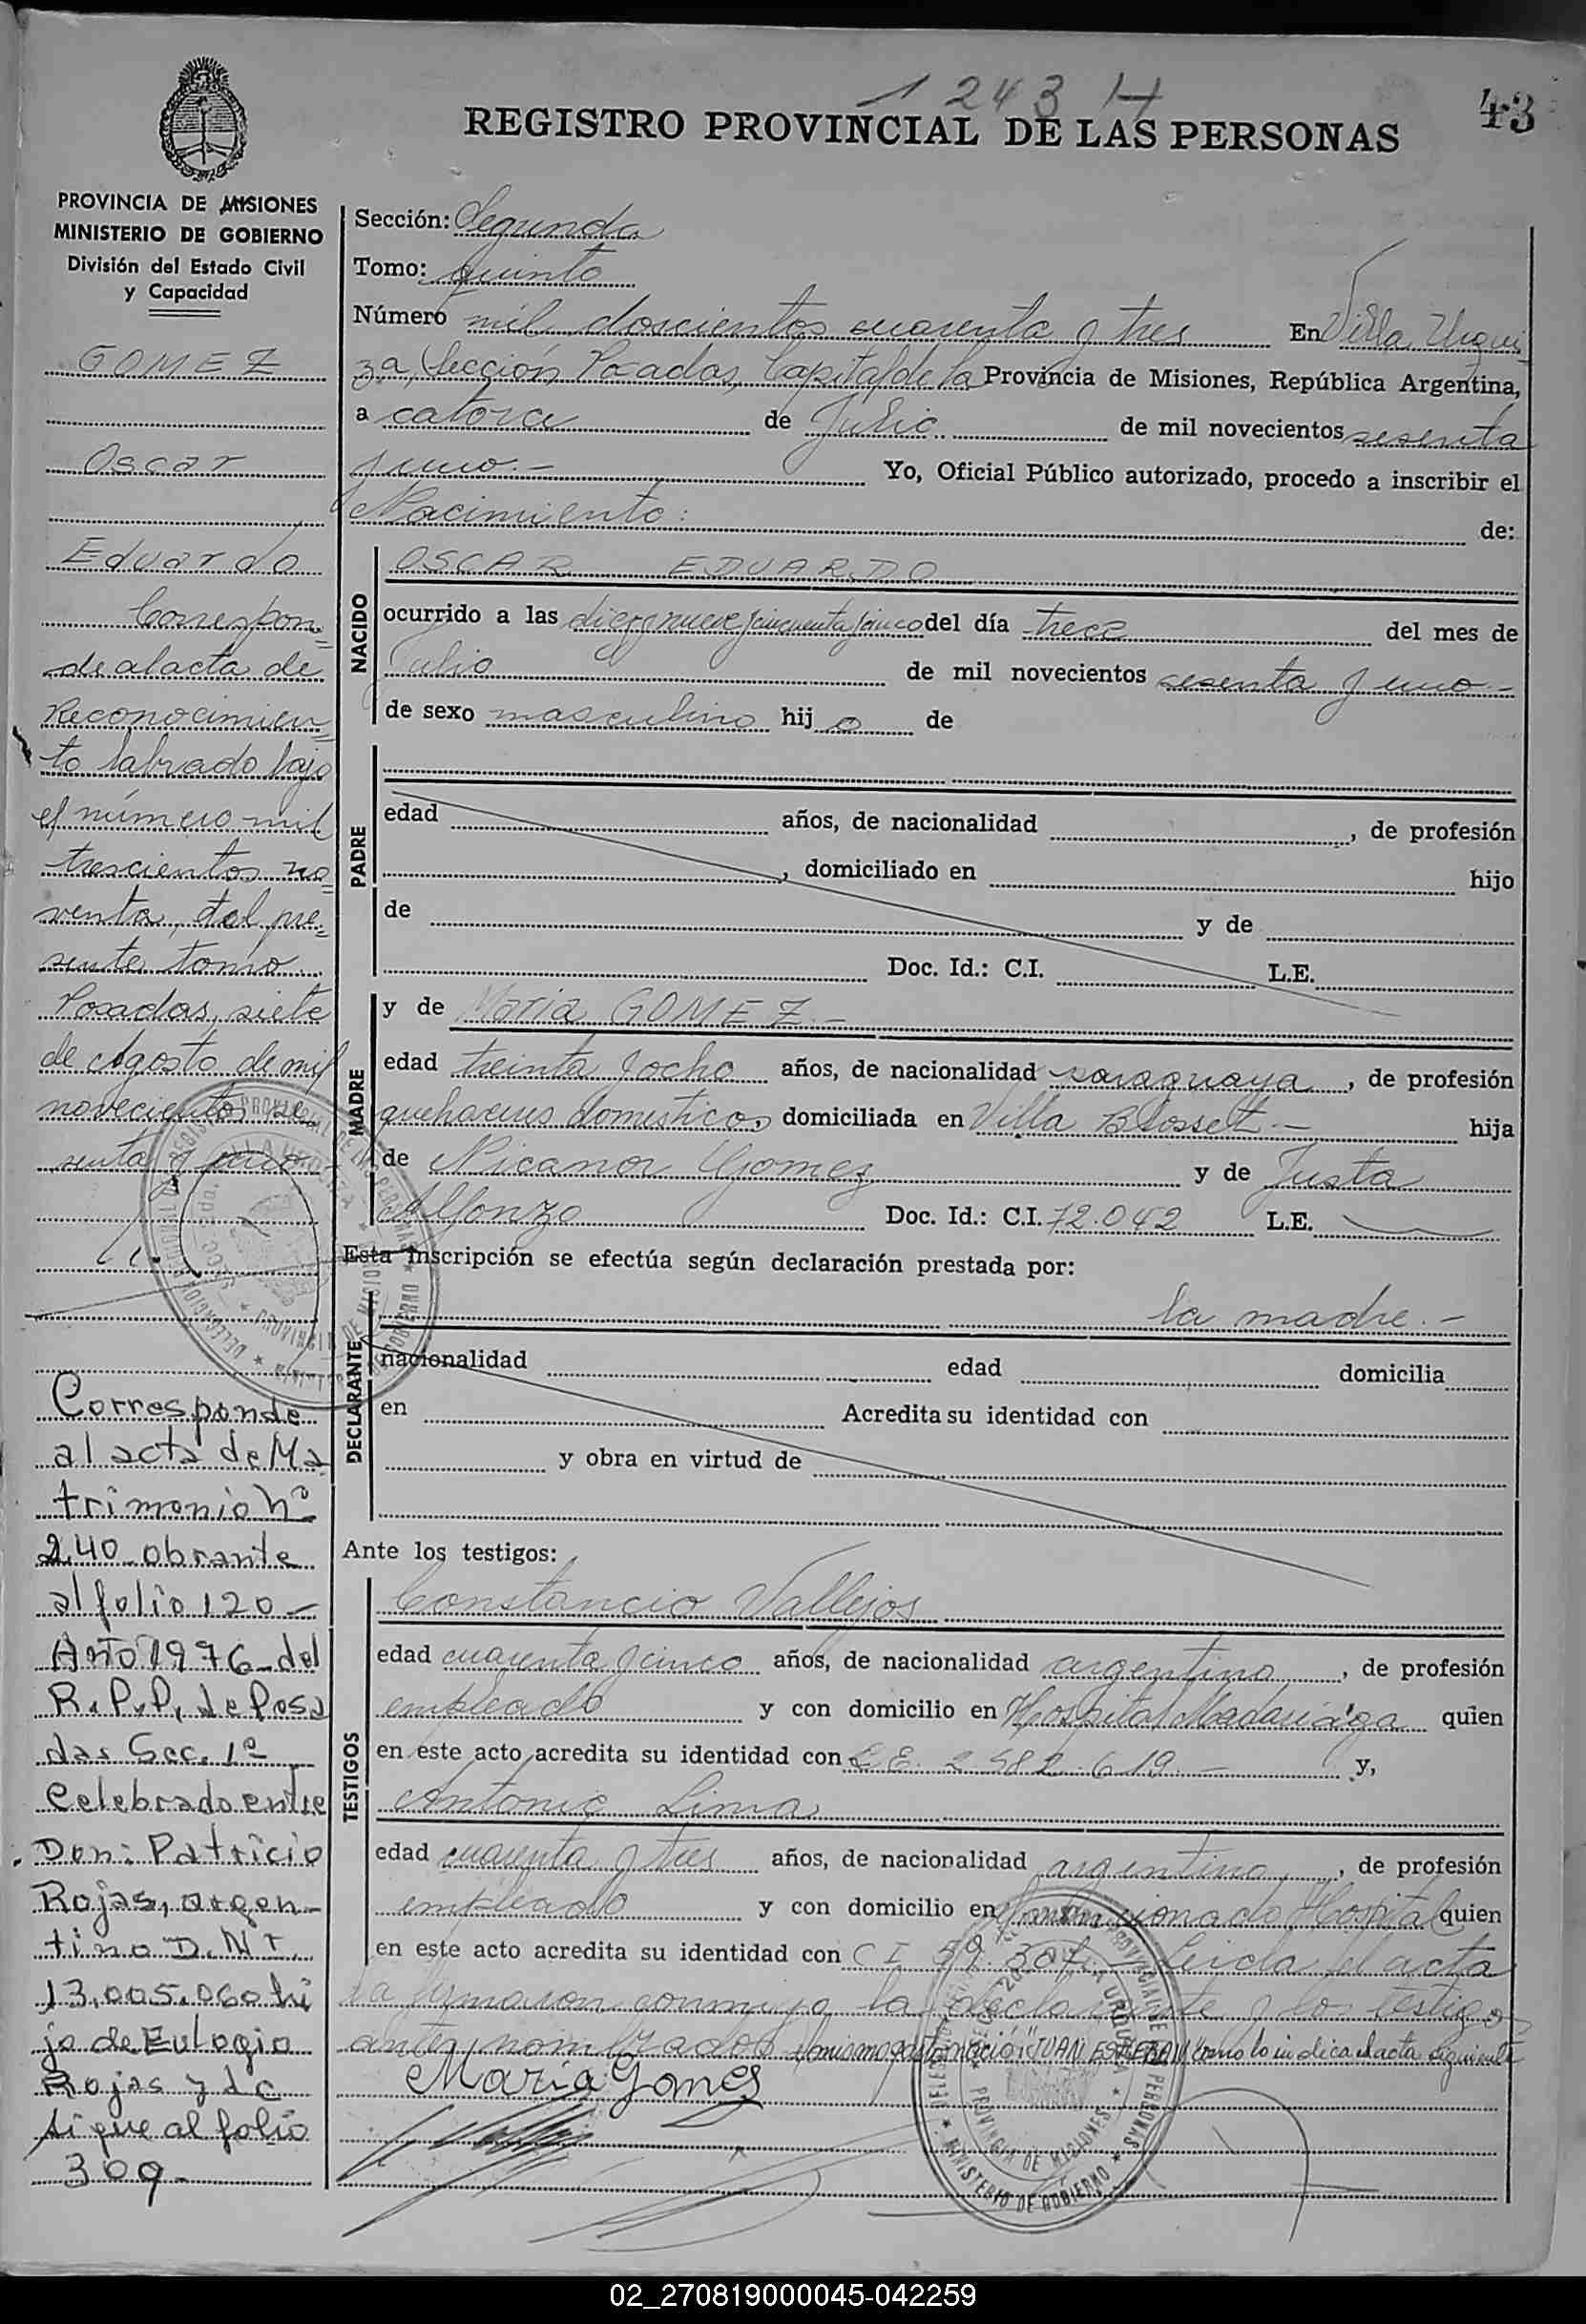 1243 H
43
REGISTRO PROVINCIAL DE LAS PERSONAS
PROVINCIA DE MISIONES
MINISTERIO DE GOBIERNO
División del Estado Civil
y Capacidad
GOMEZ
Oscar
Eduardo
Correspon=
de al acta de
Reconocimien=
to labrado bajo
el número mil
trescientos no=
venta, del pre=
sente tomo.
Posadas, siete
de Agosto de mil
novecientos se
senta y uno
Corresponde
al acta de Ma
trimonio Nº
240 obrante
al folio 120 -
Año 1976 del
R.P.P. de Posa
das Secc. 1º
Celebrado entre
Don: Patricio
Rojas, argen-
tino D.N.I.
13.005.060 hi
jo de Eulogio
Rojas y de
sigue al folio
309-
Sección: Segunda
Tomo: quinto
Número mil doscientos cuarenta y tres En Villa Urqui
za, Sección Posadas, Capital de la Provincia de Misiones, República Argentina,
a catorce de Julio de mil novecientos sesenta
y uno.- Yo, Oficial Público autorizado, procedo a inscribir el
Nacimiento: de:
NACIDO
OSCAR EDUARDO
ocurrido a las diez y nueve y cincuenta y cinco del día trece del mes de
Julio de mil novecientos sesenta y uno.-
de sexo masculino hij o de
PADRE
edad años, de nacionalidad , de profesión
, domiciliado en hijo
de y de
Doc. Id.: C.I. L.E.
MADRE
y de Maria GOMEZ.-
edad treinta y ocho años, de nacionalidad paraguaya, de profesión
quehaceres domesticos domiciliada en Villa Blosset.- hija
de Nicanor Gomez y de Justa
Alfonzo Doc. Id.: C.I. 72.042 L.E.
Esta inscripción se efectúa según declaración prestada por:
la madre.-
DECLARANTE
nacionalidad edad domicilia
en Acredita su identidad con
y obra en virtud de
Ante los testigos:
TESTIGOS
Constancio Vallejos
edad cuarenta y cinco años, de nacionalidad argentino, de profesión
empleado y con domicilio en Hospital Madariaga quien
en este acto acredita su identidad con L.E. 2.582.619.- y,
Antonio Lima
edad cuarenta y tres años, de nacionalidad argentino, de profesión
empleado y con domicilio en Hospital quien
en este acto acredita su identidad con C I 59.307.- Leida el acta
la firmaron conmigo la declarante y los testigos
antes nombrados "JUAN ESTEBAN" como lo indica el acta siguiente
Maria Gomes
MINISTERIO DE GOBIERNO
PROVINCIA DE MISIONES
02_270819000045-042259